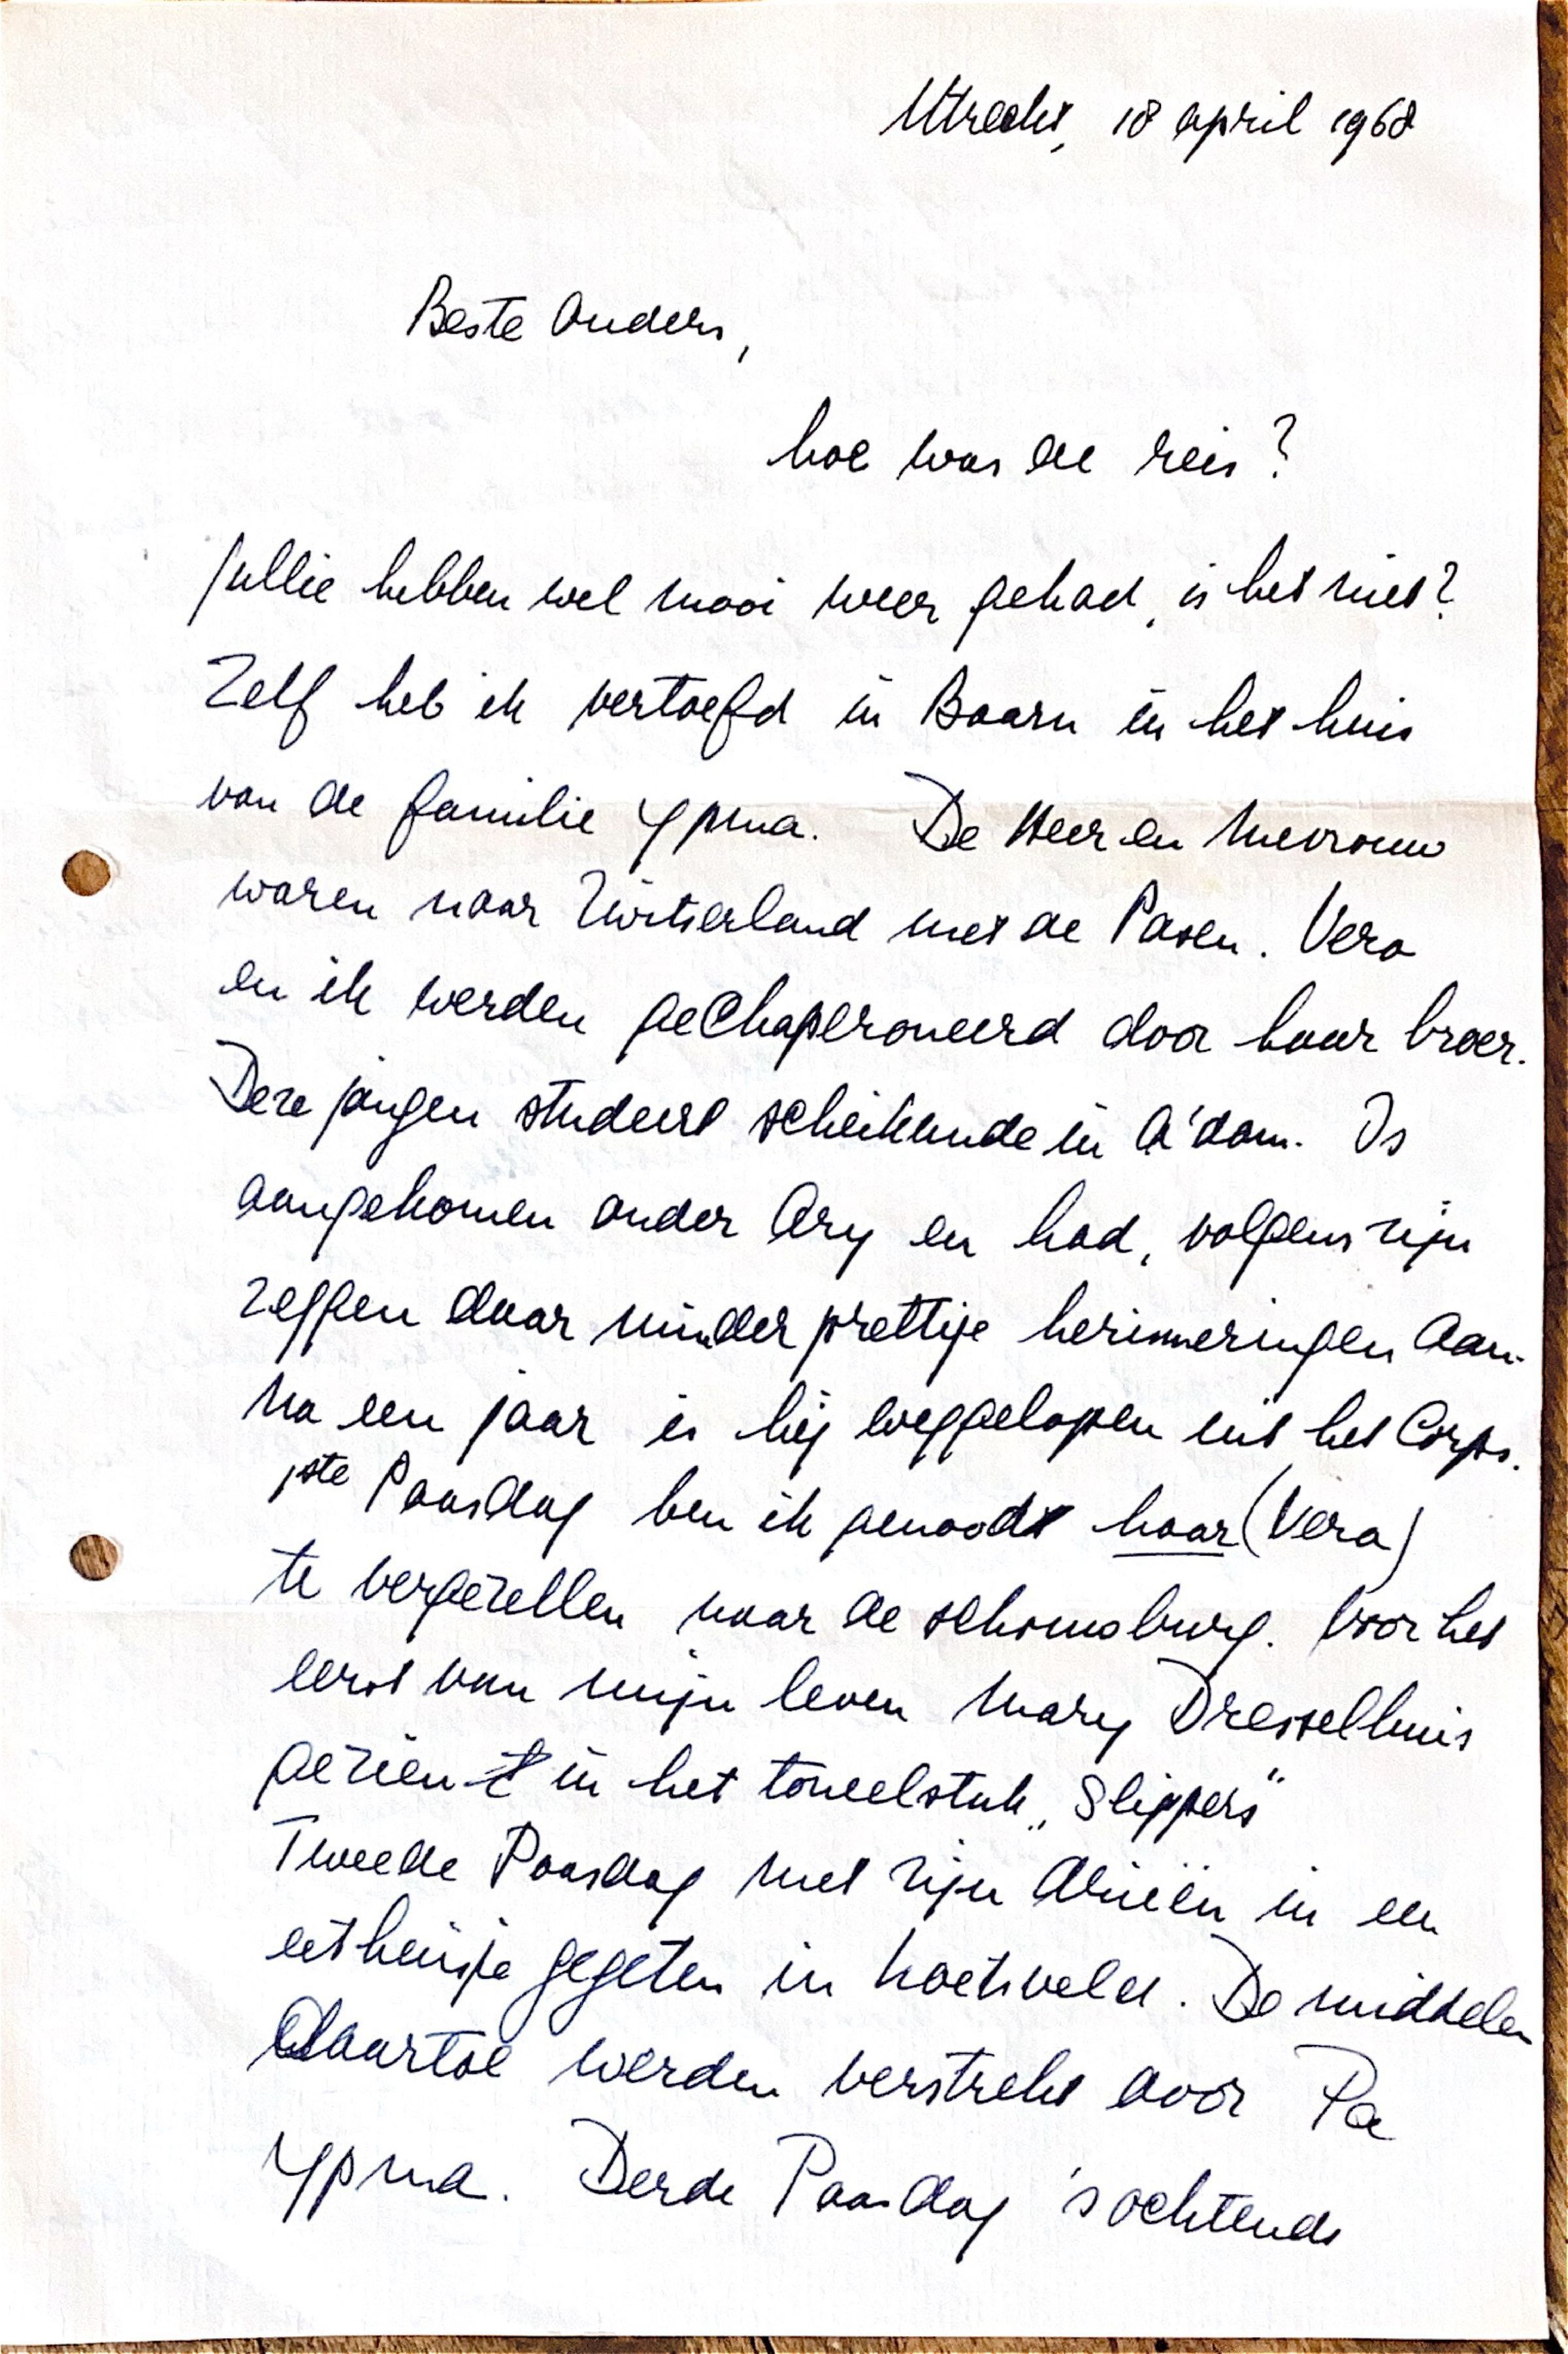 Utrecht, 18 april 1968
Beste Ouders,
hoe was de reis?
Jullie hebben wel mooi weer gehad, is het niet?
Zelf heb ik vertoefd in Baarn in het huis
van de familie Ypma. De Heer en Mevrouw
waren naar Zwitserland met de Pasen. Vera
en ik werden geChaperoneerd door haar broer.
Deze jongen studeert scheikunde in A'dam. Is
aangekomen onder Ary en had, volgens zijn
zeggen daar minder prettige herinneringen aan.
Na een jaar is hij weggelopen uit het Corps.
1ste Paasdag ben ik genoodt haar (Vera)
te vergezellen naar de schouwburg. Voor het
eerst van mijn leven Mary Dresselhuis
gezien in het toneelstuk „Slippers"
Tweede Paasdag met zijn drieën in een
eethuisje gegeten in hoevelaken. De middelen
daartoe werden verstrekt door Pa
Ypma. Derde Paasdag 's ochtends